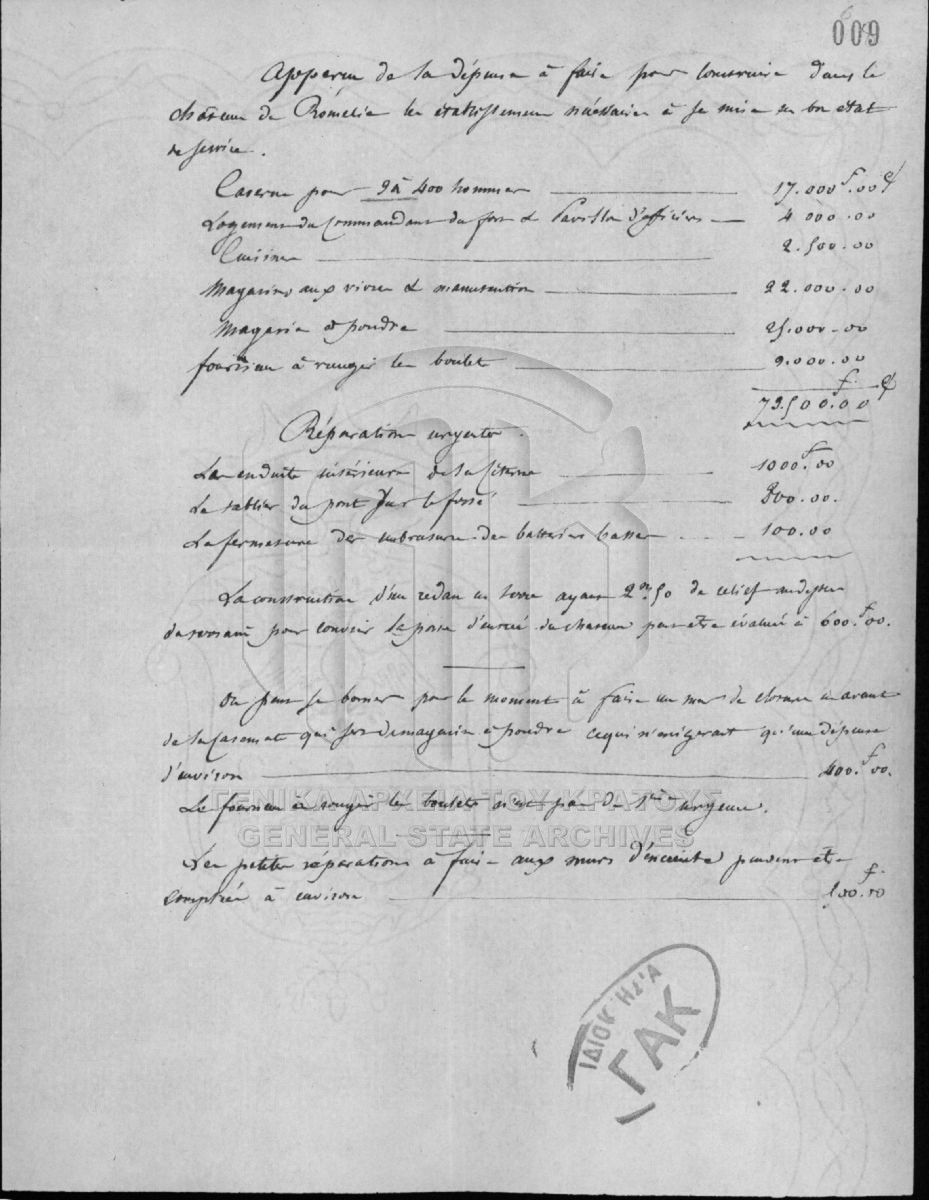 009
Apperçu de la dépense à faire pour construire dans le
château de Romélie les établissemens nécessaires à sa mise en bon état
de service.
Caserne pour 400 hommes 17.000f.00c
Logement du Commandant du fort & Pavillon d'officiers 4.000.00
Cuisines 2.500.00
Magasins aux vivres & manutention 22.000.00
Magasin à poudre 25.000.00
fourneau à rougir les boulets 2.000.00
72.500f.00c
Réparations urgentes.
Les enduits intérieurs de la Citerne 1000f.00
Le tablier du pont sur le fossé 800.00.
La fermeture des embrasures des batteries basses 100.00
La construction d'un redan en terre ayant 2m.50 de relief au dessus
du terrain pour couvrir la porte d'entrée du chateau peut être évaluée à 600f.00.
On peut se borner pour le moment à faire un mur de cloture en avant
de la Casemate qui sert de magasin à poudre ce qui n'exigerait qu'une dépense
d'environ 400f.00.
Le fourneau à rougir les boulets n'est pas de 1ère urgence.
ΓΕΝΙΚΑ ΑΡΧΕΙΑ ΤΟΥ ΚΡΑΤΟΥΣ
GENERAL STATE ARCHIVES
Les petites réparations à faire aux murs d'enceinte peuvent être
comptées à environ 200f.00
ΙΔΙΟΚΤΗΣΙΑ
ΓΑΚ